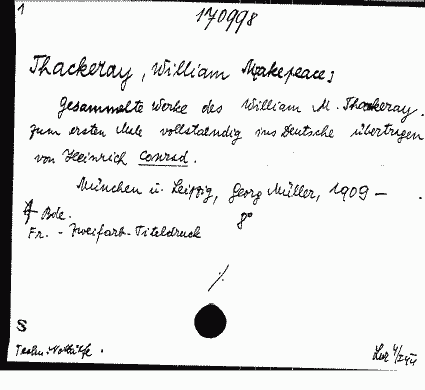 1
170998
Thackeray, William Makepeace;
Gesammelte Werke des William M. Thackeray.
zum ersten Male vollstaendig ins Deutsche übertragen
von Heinrich Conrad.
München u. Leipzig, Georg Müller, 1909 –
Bde. 8°
Fr. - Zweifarb-Titeldruck
S
Techn. Nothilfe.